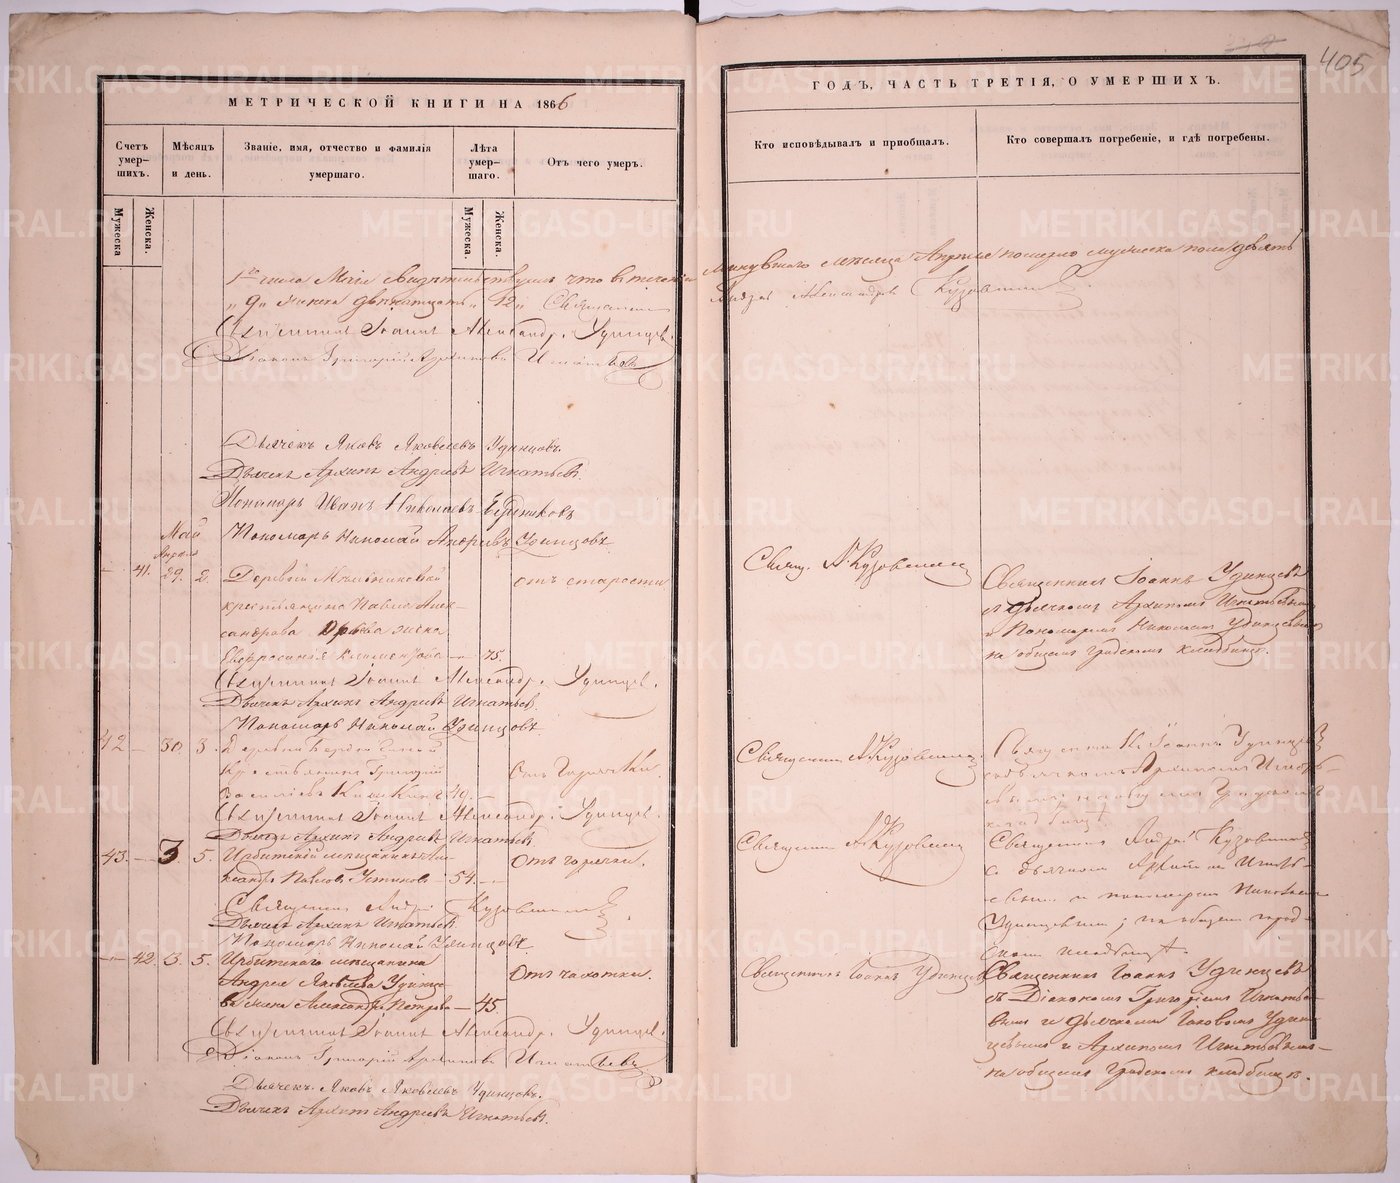 405
МЕТРИЧЕСКОЙ КНИГИ НА 1866
ГОДЪ, ЧАСТЬ ТРЕТІЯ, О УМЕРШИХЪ.
Счетъ умер-
шихъ.
Мѣсяцъ
и день.
Званіе, имя, отчество и фамилія
умершаго.
Лѣта
умер-
шаго.
Отъ чего умеръ.
Кто исповѣдывалъ и приобщалъ.
Кто совершалъ погребеніе, и гдѣ погребены.
Мужеска
Женска.
Мужеска
Женска.
1го числа Маія свидѣтельствуемъ что въ теченіи минувшаго мѣсяца Апрѣля померло мужеска пола девять
„9„ женска двѣнадцать „12„ Священникъ Андрей Александровъ Кузовниковъ
Священникъ Іоаннъ Александр. Удинцевъ.
Діаконъ Григорій Архиповъ Игнатьевъ
Дьячекъ Яковъ Яковлевъ Удинцовъ.
Дьячекъ Архипъ Андреевъ Игнатьевъ.
Пономарь Иванъ Николаевъ
Пономарь Николай Андреевъ Удинцовъ.
Май
Апрѣль
— 41. 29. 2. Деревни
крестьянина Павла Алек-
сандрова жена
Евфросинія — 75.
отъ старости
Свящ. А. Кузовников
Священникъ Іоаннъ Удинцевъ
съ дьячкомъ Архипомъ Игнатьевымъ
и Пономаремъ Николаемъ Удинцевымъ
на общемъ градскомъ кладбищѣ.
Священникъ Іоаннъ Александр. Удинцевъ.
Дьячекъ Архипъ Андреевъ Игнатьевъ.
Пономарь Николай Удинцовъ.
42 — 30 3. Деревни
Крестьянинъ Григорій
Василіевъ 49. —
Отъ Горячки.
Священникъ А. Кузовников
Священникъ Іоаннъ Удинцевъ
съ дьячкомъ Архипомъ Игнать-
евымъ, на общемъ Градскомъ
кладбищѣ.
Священникъ Іоаннъ Александр. Удинцевъ.
Дьячекъ Архипъ Андреевъ Игнатьевъ.
43. — 3 5. Ирбитскій мѣщанинъ Але-
ксандръ Павловъ Устиновъ 54. —
Отъ горячки.
Священникъ А. Кузовников
Священникъ Андрей Кузовниковъ
съ дьячкомъ Архипомъ Игнать-
евымъ и пономаремъ Николаемъ
Удинцовымъ; на общемъ город-
скомъ кладбищѣ.
Священникъ Андрей Кузовниковъ.
Дьячекъ Архипъ Игнатьевъ.
Пономарь Николай Удинцовъ.
— 42. 3. 5. Ирбитскаго мѣщанина
Андрея Яковлева Удинце-
ва жена Александра Петрова — 45.
Отъ чахотки.
Священникъ Іоаннъ Удинцевъ
Священникъ Іоаннъ Удинцевъ
съ Діакономъ Григоріемъ Игнатье-
вымъ и дьячками Іаковомъ Удин-
цевымъ и Архипомъ Игнатьевымъ
на общемъ Градскомъ кладбищѣ.
Священникъ Іоаннъ Александр. Удинцевъ.
Діаконъ Григорій Архиповъ Игнатьевъ.
Дьячекъ Яковъ Яковлевъ Удинцовъ.
Дьячекъ Архипъ Андреевъ Игнатьевъ.
METRIKI.GASO-URAL.RU